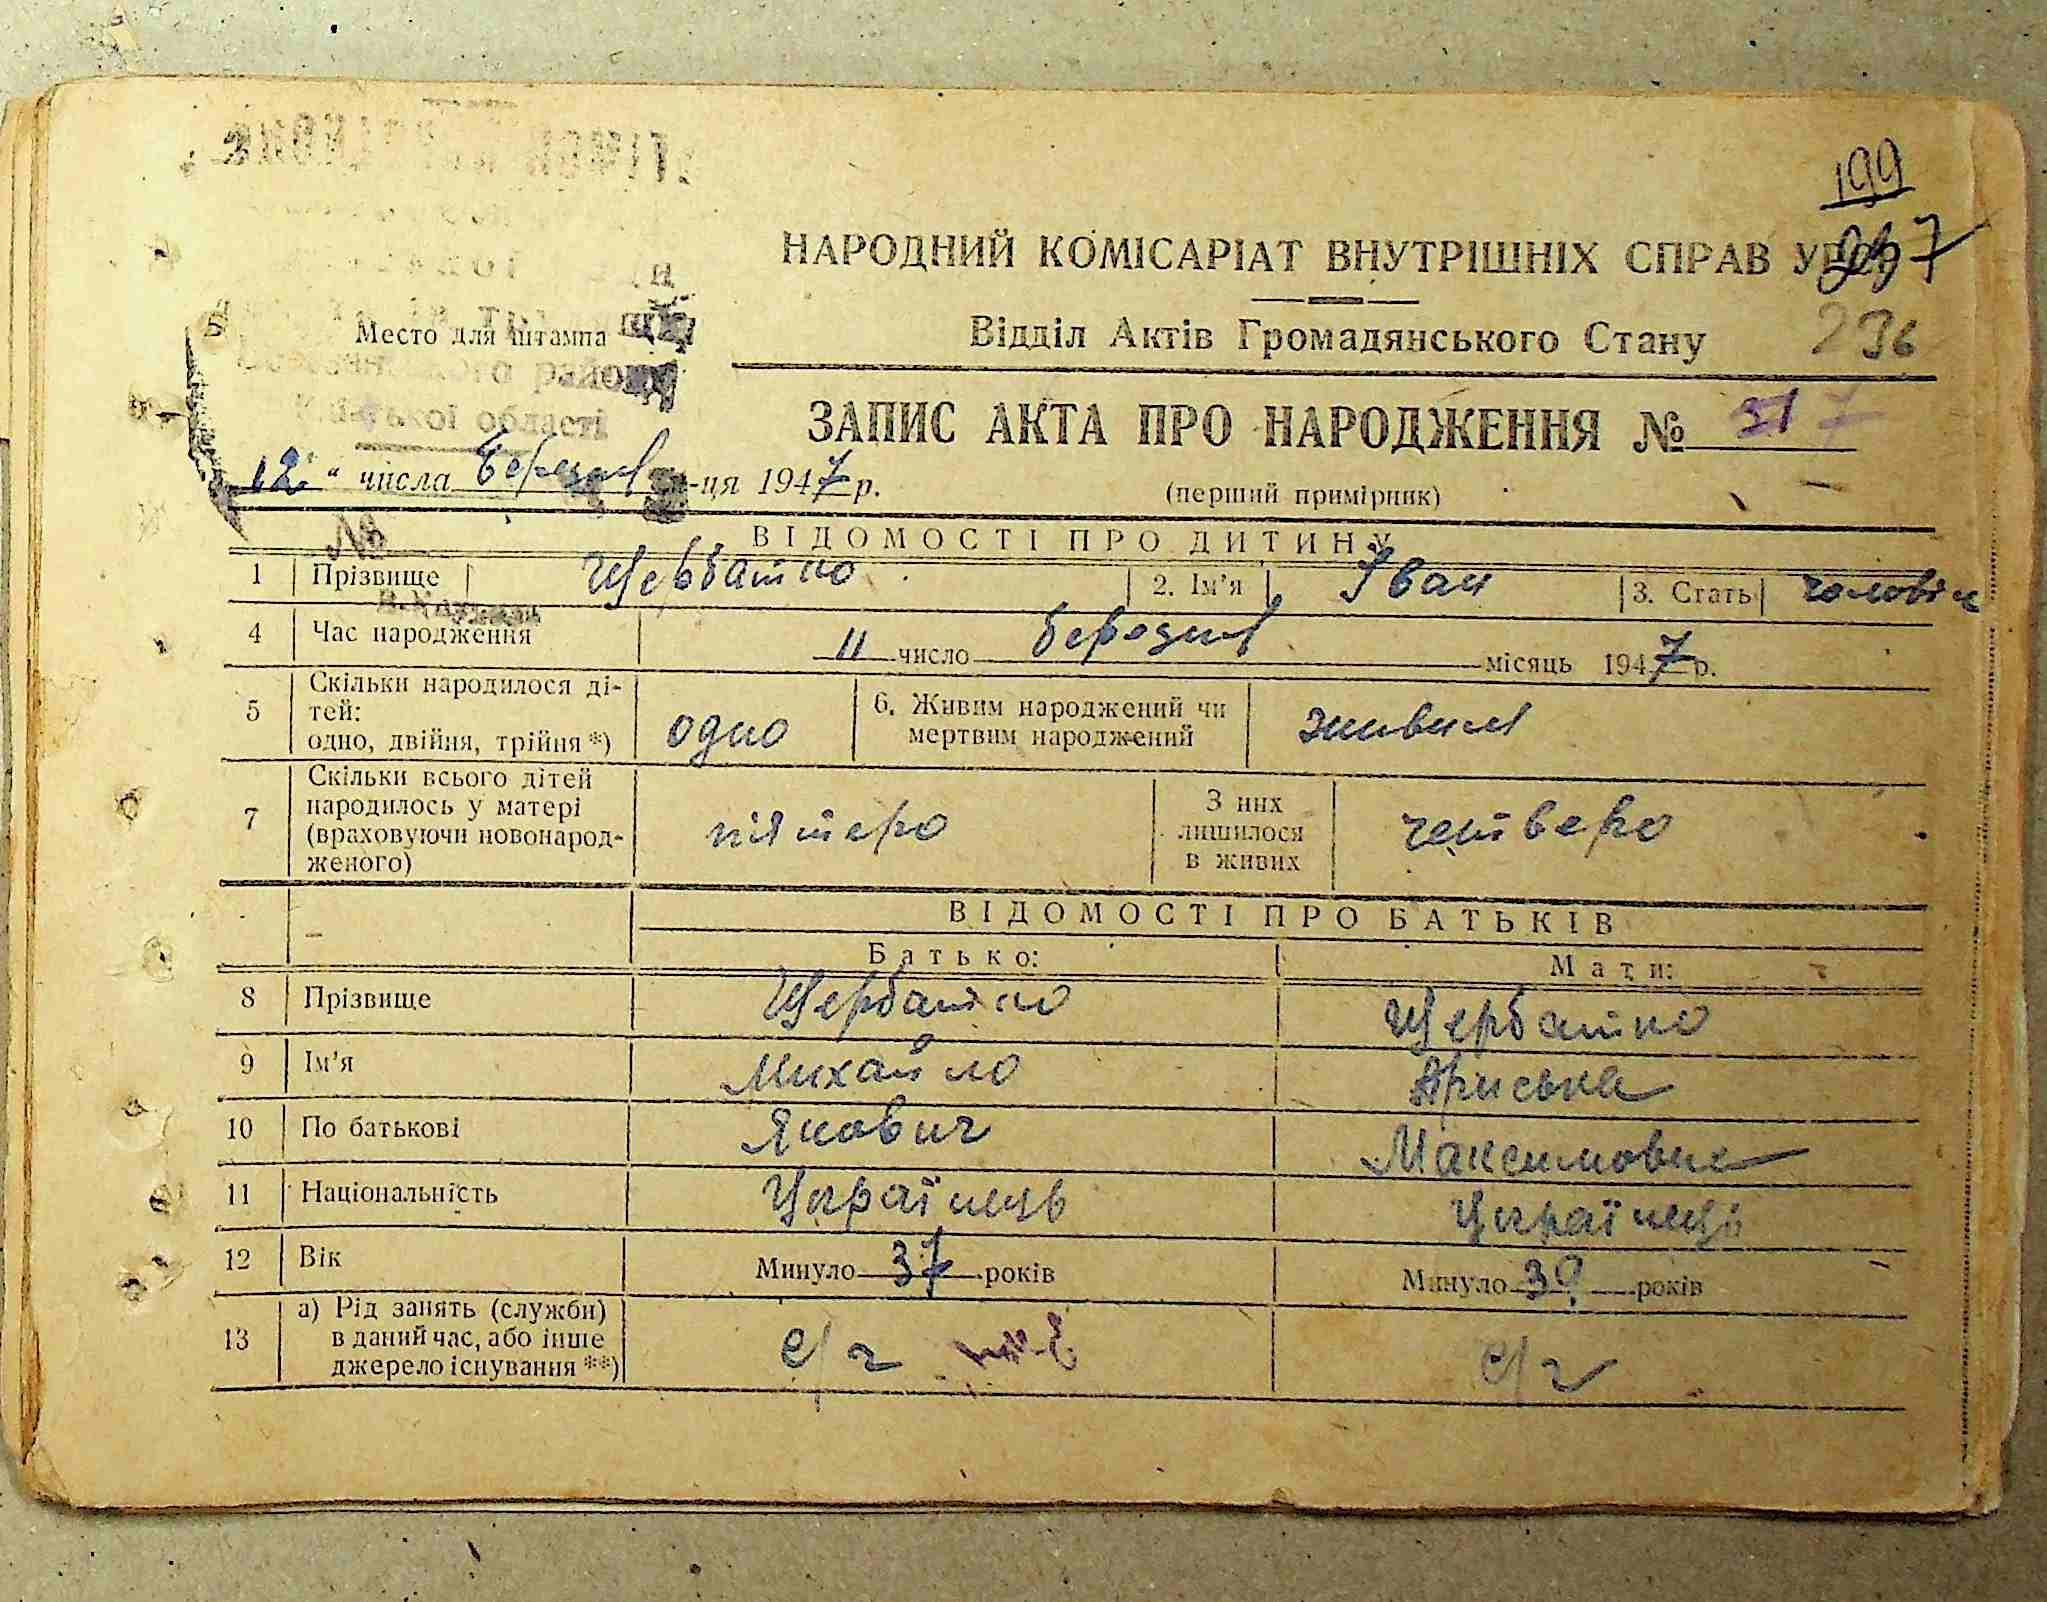 199
НАРОДНИЙ КОМІСАРІАТ ВНУТРІШНІХ СПРАВ
Відділ Актів Громадянського Стану
236
Место для штампа
району
області
ЗАПИС АКТА ПРО НАРОДЖЕННЯ №
12 " числа березня м-ця 1947 р.
(перший примірник)
№
ВІДОМОСТІ ПРО ДИТИНУ
1 Прізвище Щербатко 2. Ім'я Іван 3. Стать чоловіч
4 Час народження 11 число березня місяць 1947 р.
5 Скільки народилося ді-
тей:
одно, двійня, трійня *) одно 6. Живим народжений чи
мертвим народжений живим
7 Скільки всього дітей
народилось у матері
(враховуючи новонарод-
женого) пятеро З них
лишилося
в живих четверо
ВІДОМОСТІ ПРО БАТЬКІВ
Батько: Мати:
8 Прізвище Щербатко Щербатко
9 Ім'я Михайло Приська
10 По батькові Якович Максимовна
11 Національність Українець Українец
12 Вік Минуло 37 років Минуло 39 років
13 а) Рід занять (служби)
в даний час, або інше
джерело існування **) с/г с/г